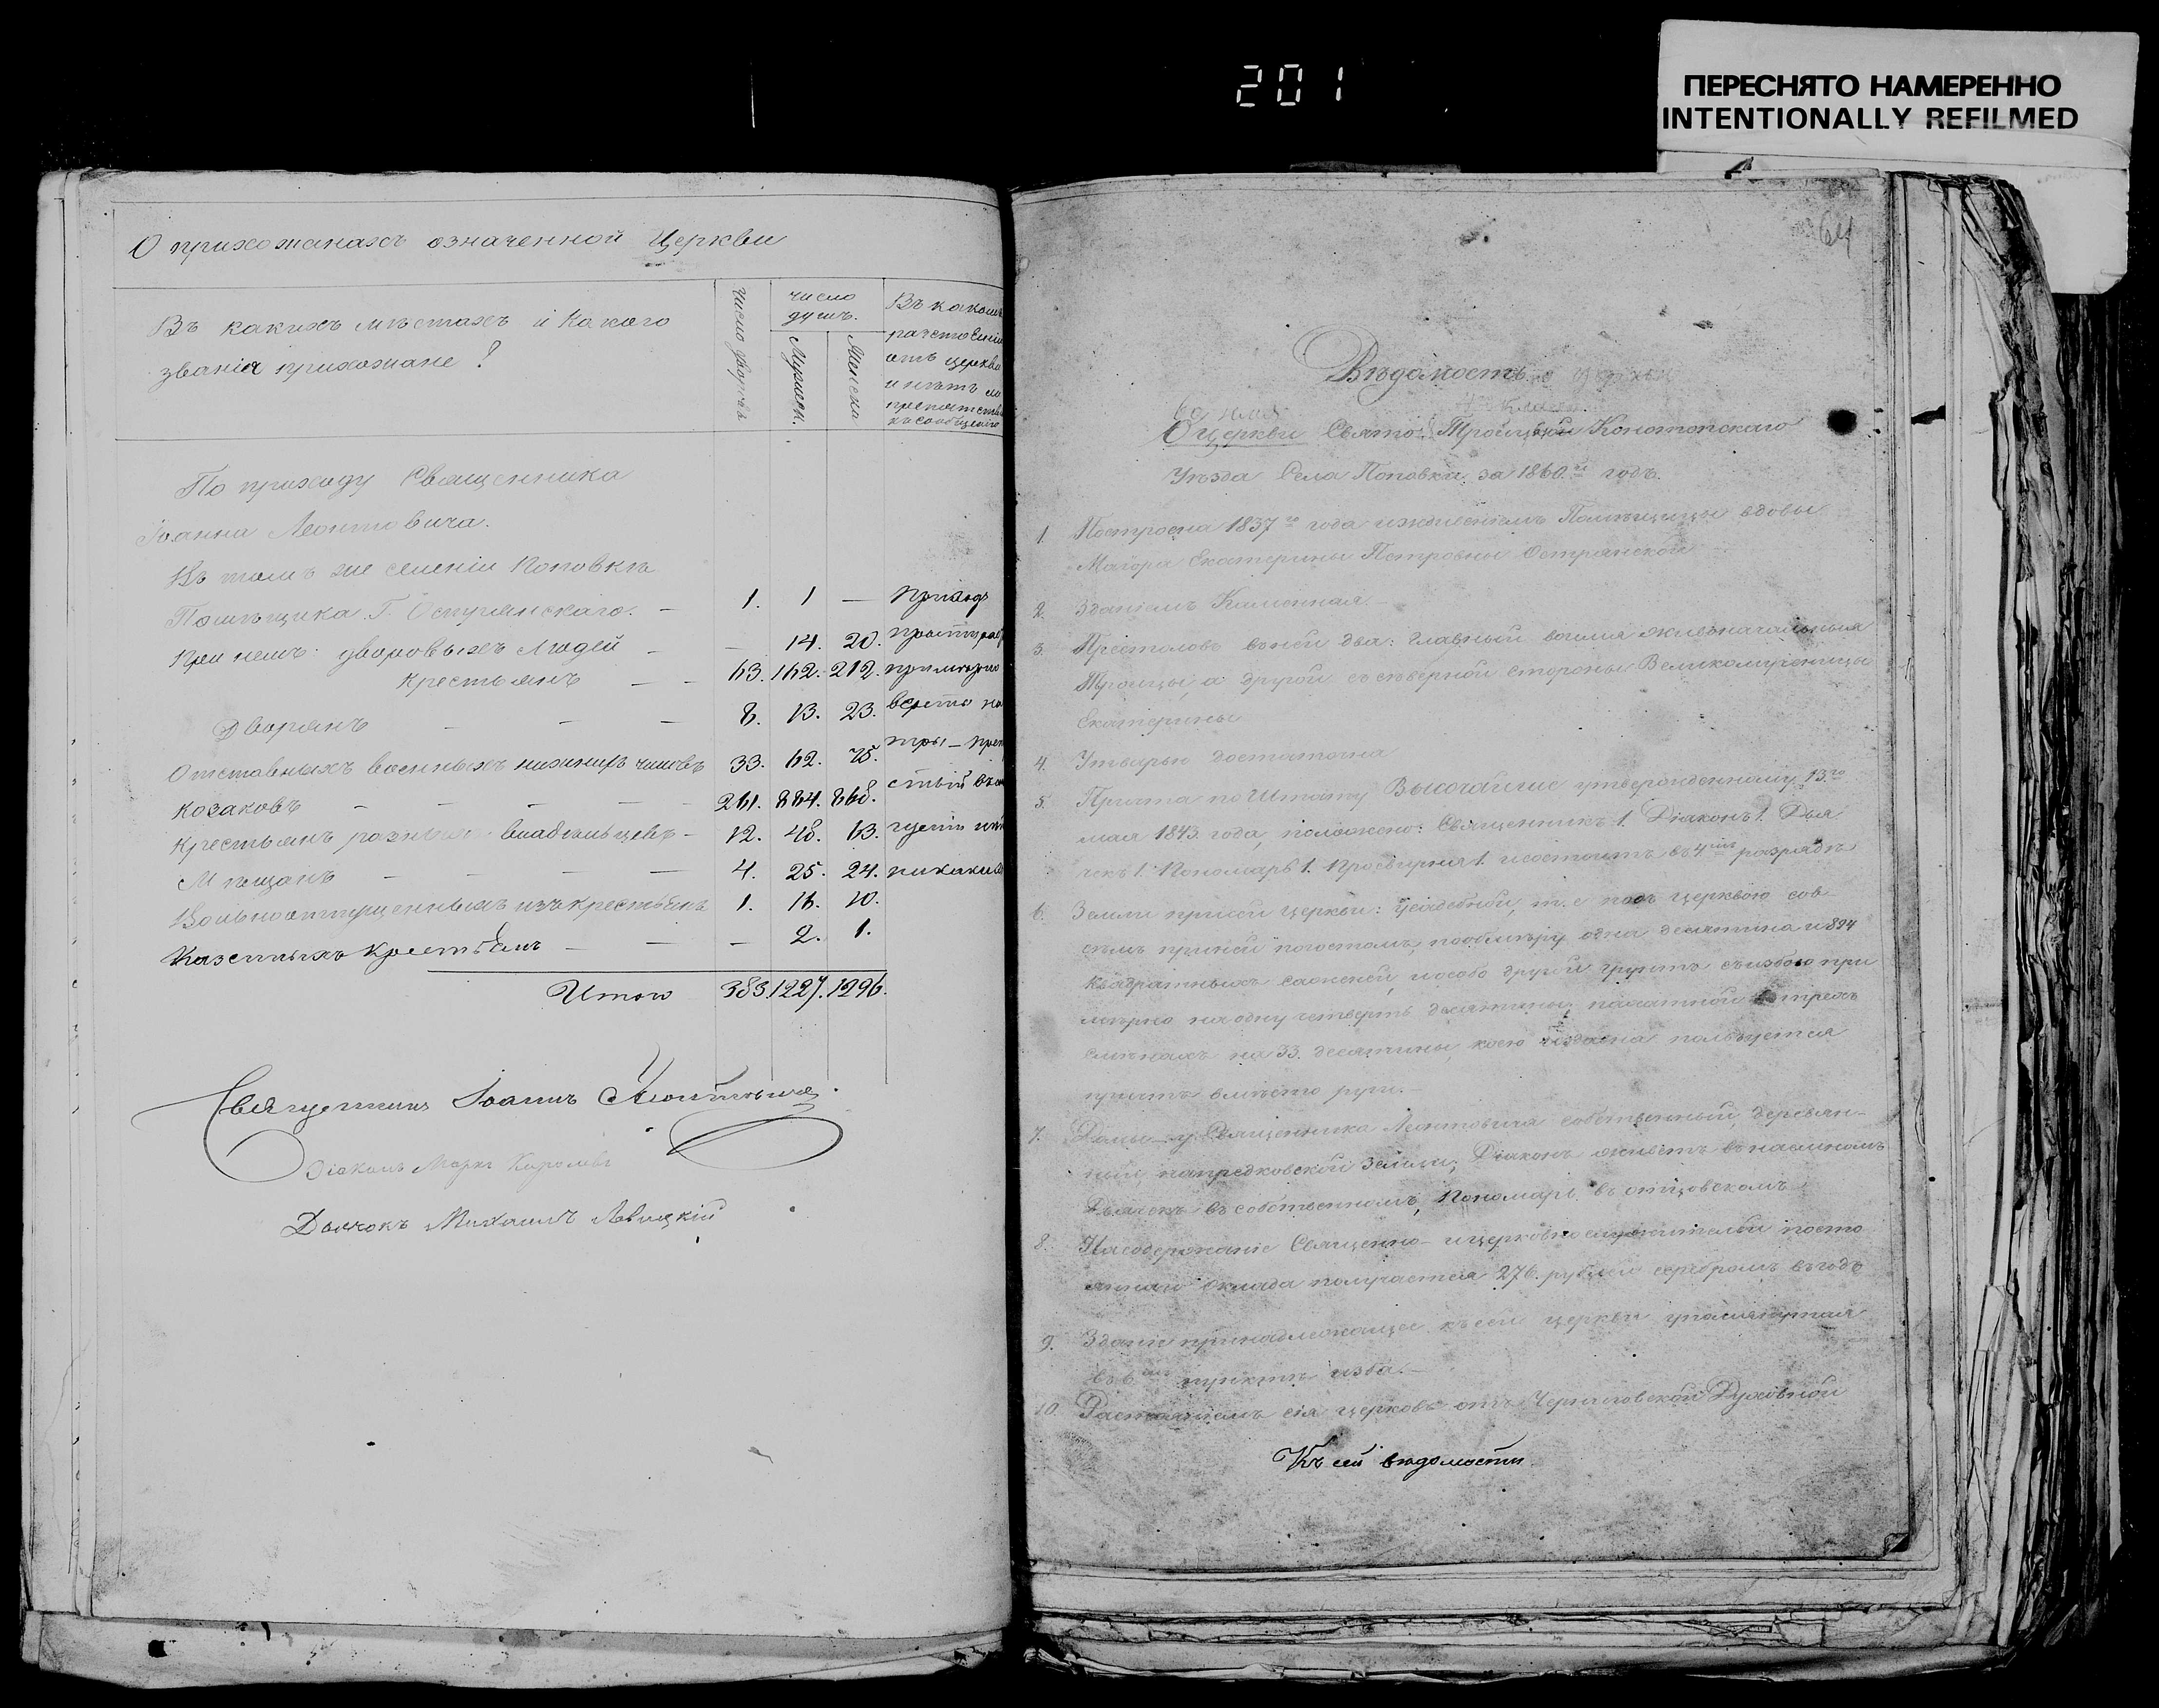 201
ПЕРЕСНЯТО НАМЕРЕННО
INTENTIONALLY REFILMED
О прихожанахъ означенной Церкви
Въ какихъ мѣстахъ и какого
званія прихожане?
число дворовъ
число
душъ.
Мужеск.
Женска
Въ какомъ
разстояніи
отъ церкви
и нѣтъ ли
препятств
къ сообщенію
По приходу Священника
Іоанна Леонтовича.
Въ томъ же селеніи Поповкѣ
Помѣщика Г. Острянскаго. — 1. 1 — приходъ
При немъ: дворовыхъ людей — — 14. 20.
крестьянъ — — 63. 162. 212. примѣрно
Дворянъ — — — 8. 13. 23.
Отставныхъ военныхъ нижнихъ чиновъ 33. 62. 75.
Козаковъ — — — — 261. 884. 868.
Крестьянъ разныхъ владѣльцевъ — 12. 48. 13.
Мѣщанъ — — — — 4. 25. 24.
Вольноотпущенныхъ изъ крестьянъ 1. 16. 10.
Казенныхъ крестьянъ — — — 2. 1.
Итого 383. 1227. 1296.
Священникъ Іоаннъ Леонтовичъ.
Діаконъ Маркъ
Дьячокъ Михаилъ Левицкій
64
Вѣдомость
О церкви Свято-Троицкой Конотопскаго
Уѣзда Села Поповка, за 1860.й годъ.
1. Построена 1837го года иждивеніемъ Помѣщицы вдовы
Маіора Екатерины Петровны Острянской
2. Зданіемъ Каменная.—
3. Престоловъ въ ней два: главный во имя живоначальныя
Троицы, а другой съ сѣверной стороны Великомученицы
Екатерины
4. Утварью достаточна
5. Причта по Штату Высочайше утвержденному 13го
мая 1843. года, положено: Священникъ 1. Діаконъ 1. Дья
чекъ 1. Пономарь 1. Просвирня 1. и состоитъ въ 4мъ разрядѣ
6. Земли при сей церкви: усадебной, т. е. подъ церквою сов-
сѣмъ при ней погостомъ, по обмѣру одна десятина и 894
квадратныхъ саженей, и особо другой грунтъ съ избою при
мѣрно на одну четверть десятины, пахатной въ трехъ
смѣнахъ на 33. десятины, коею издавна пользуется
причтъ вмѣсто руги.—
7. Домы — у Священника Леонтовича собственный, деревян-
ный на предковской земли, Діаконъ живетъ въ наемномъ
Дьячекъ въ собственномъ, Пономарь въ отцовскомъ
8. На содержаніе Священно- и церковнослужителей посто
яннаго оклада получается 276. рублей серебромъ въ годъ
9. Зданіе принадлежащее къ сей церкви упомянутая
въ 6мъ пунктѣ изба.—
10. Разстояніемъ сія церковь отъ Черниговской Духовной
Къ сей вѣдомости